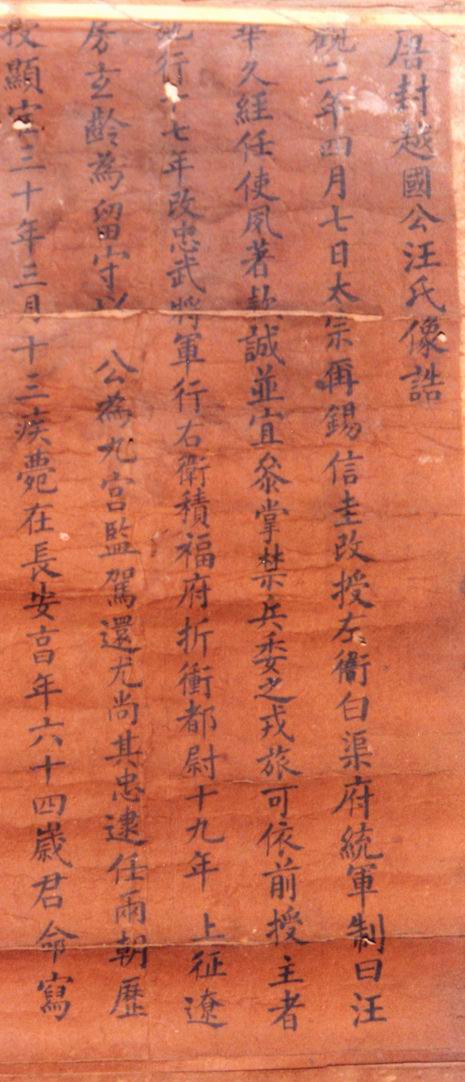 唐封越國公汪氏像誥
觀二年四月七日太宗再錫信圭改授左衞白渠府統軍制曰汪
華久經任使夙著款誠並宜叅掌禁兵委之戎旅可依前授主者
施行十七年改忠武將軍行右衛積福府折衝都尉十九年上征遼
房玄齡為留守以公為九宮監駕還尤尚其忠逮任兩朝歷
授顯宦三十年三月十三疾薨在長安享年六十四歲君命寫